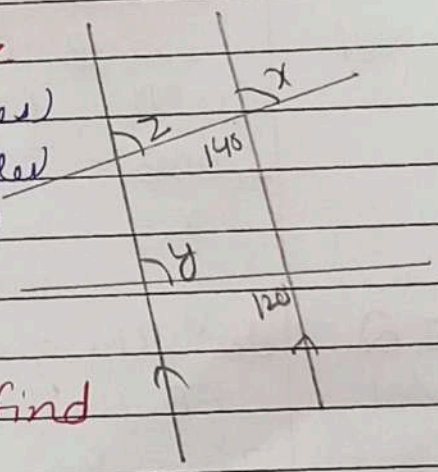 x
z
140
y
120
find